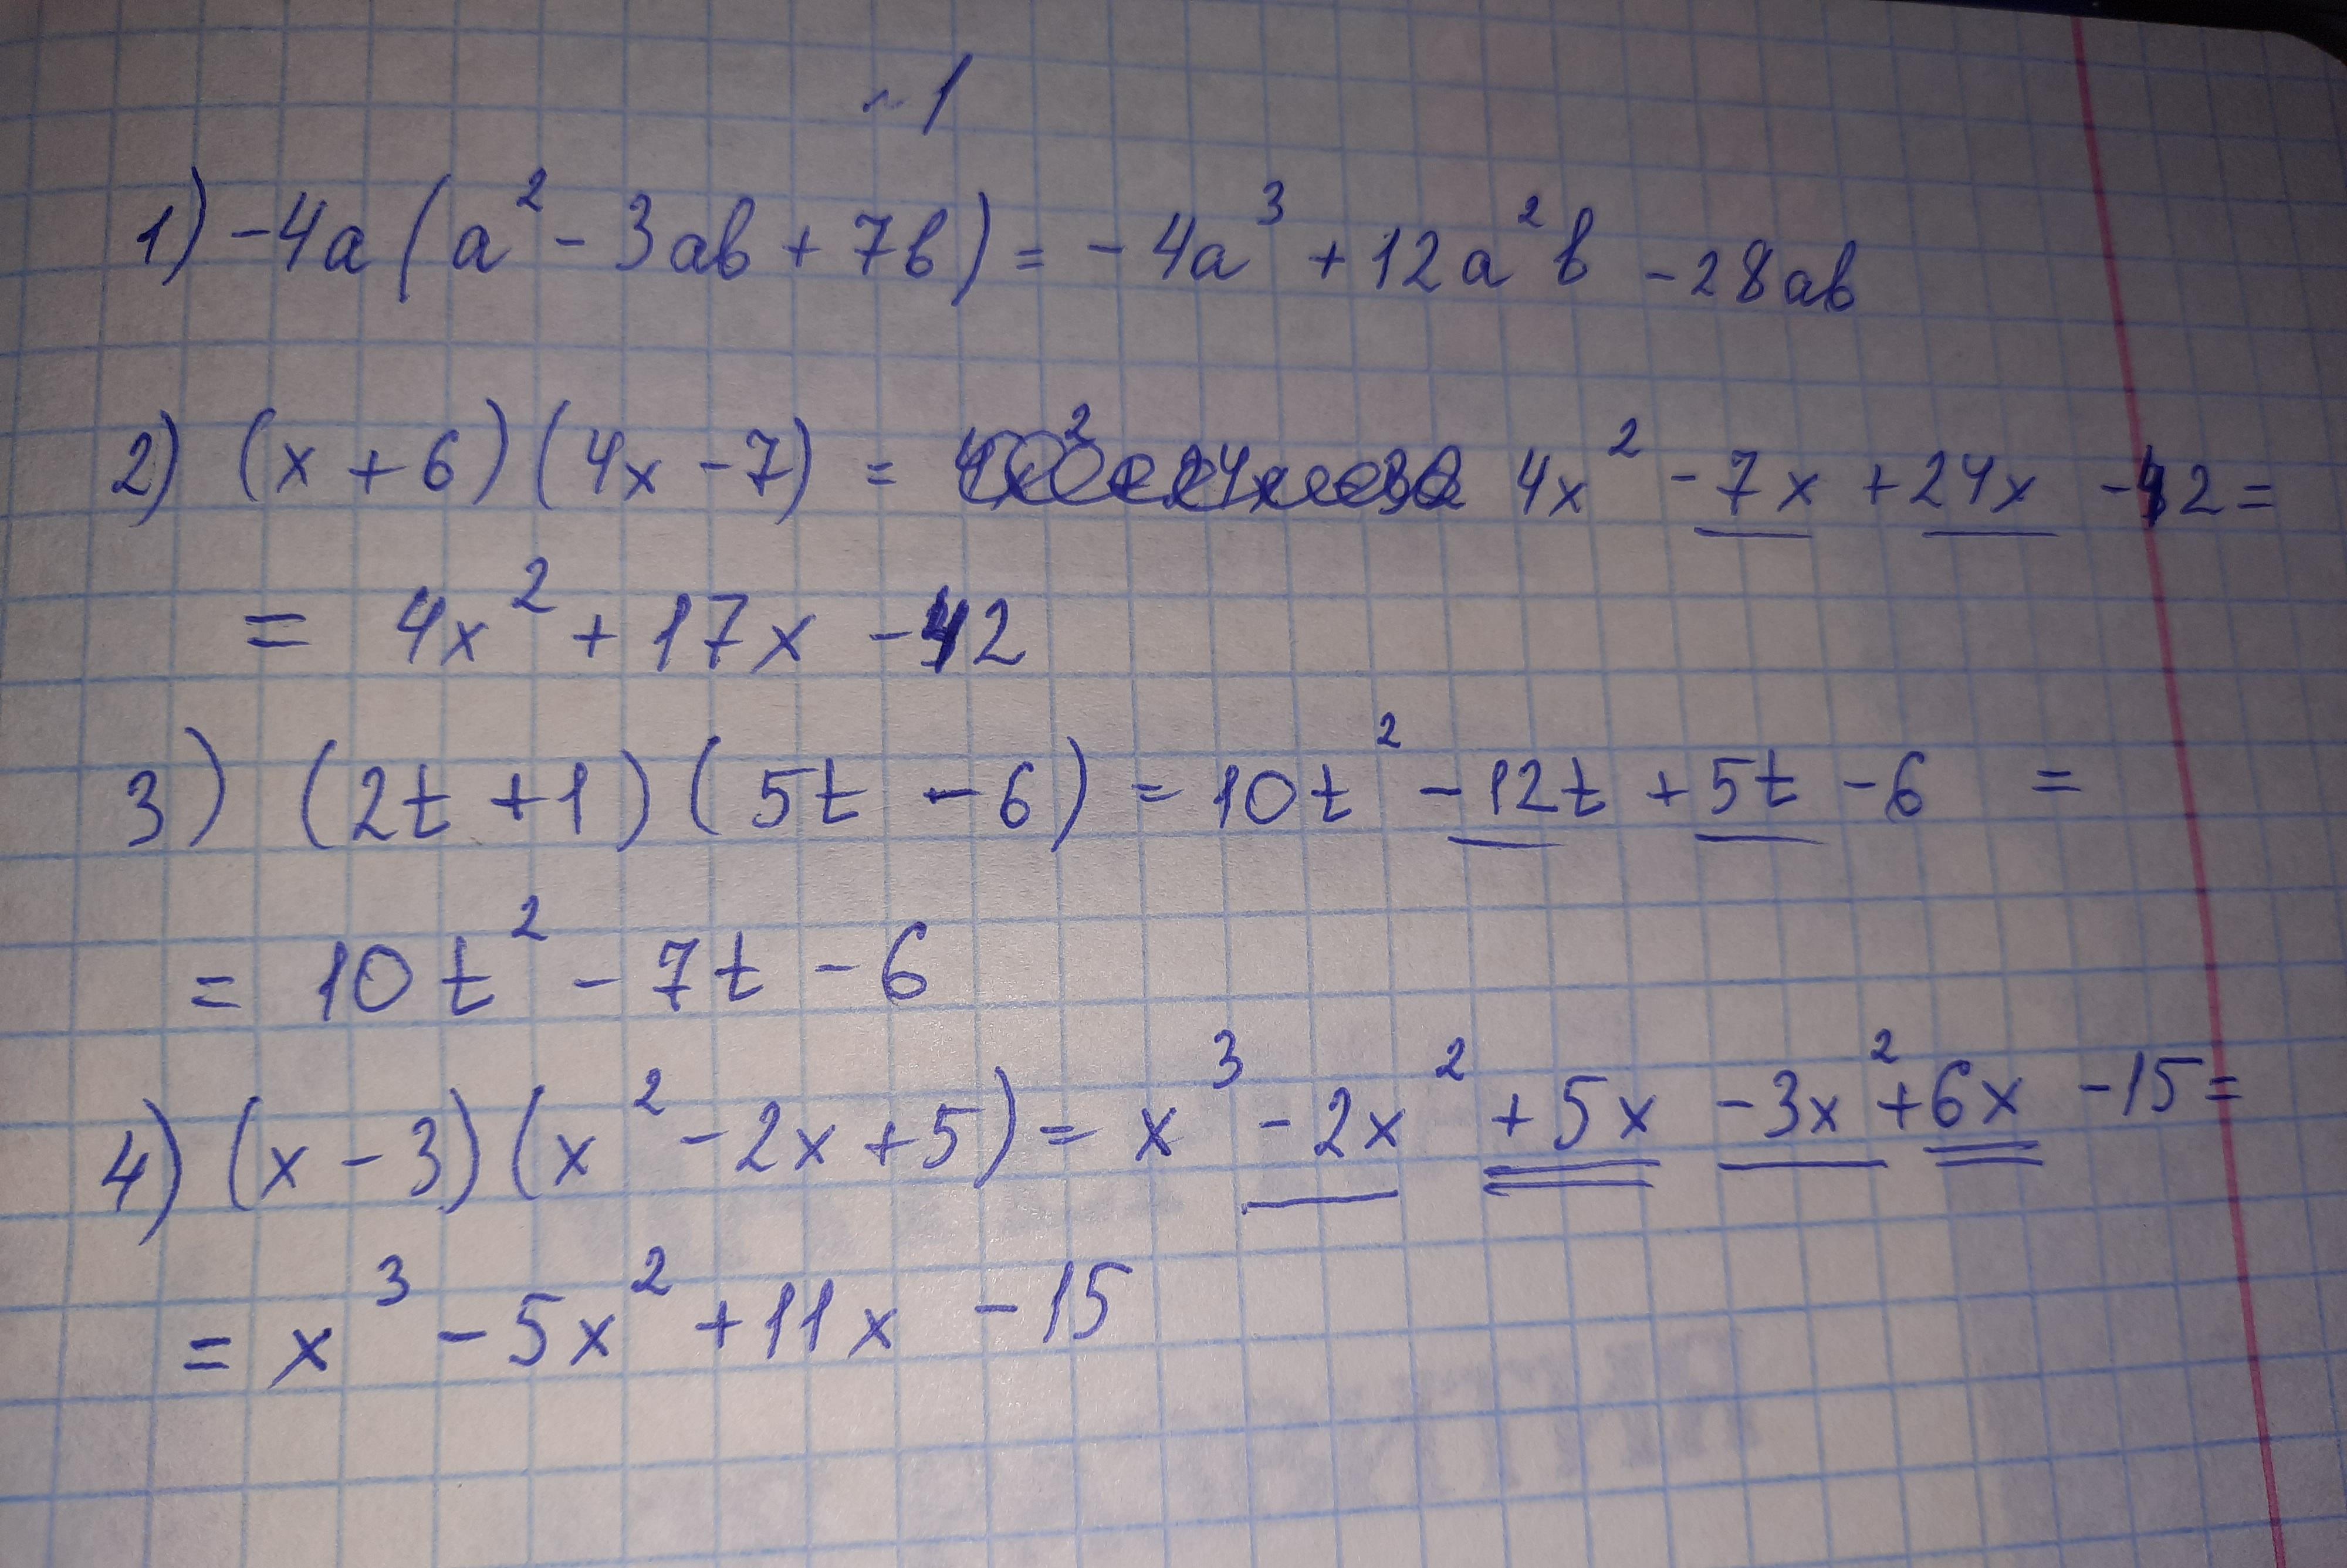 ~1
1) -4a(a² - 3ab + 7b) = -4a³ + 12a²b - 28ab
2) (x + 6)(4x - 7) = 4x² - 7x + 24x - 42 =
= 4x² + 17x - 42
3) (2t + 1)(5t - 6) = 10t² - 12t + 5t - 6 =
= 10t² - 7t - 6
4) (x - 3)(x² - 2x + 5) = x³ - 2x² + 5x - 3x² + 6x - 15 =
= x³ - 5x² + 11x - 15